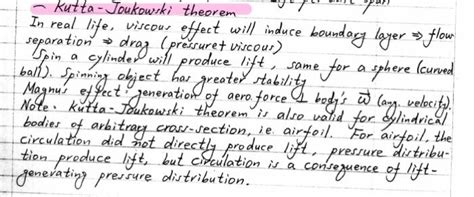 - Kutta-Joukowski theorem
In real life, viscous effect will induce boundary layer ⇒ flow
separation ⇒ drag (pressure + viscous)
Spin a cylinder will produce lift, same for a sphere (curved
ball). Spinning object has greater stability.
Magnus effect: generation of aero. force ⊥ body's ω⃗ (ang. velocity).
Note: Kutta-Joukowski theorem is also valid for cylindrical
bodies of arbitrary cross-section, ie. airfoil. For airfoil, the
circulation did not directly produce lift, pressure distribu-
tion produce lift, but circulation is a consequence of lift-
generating pressure distribution.